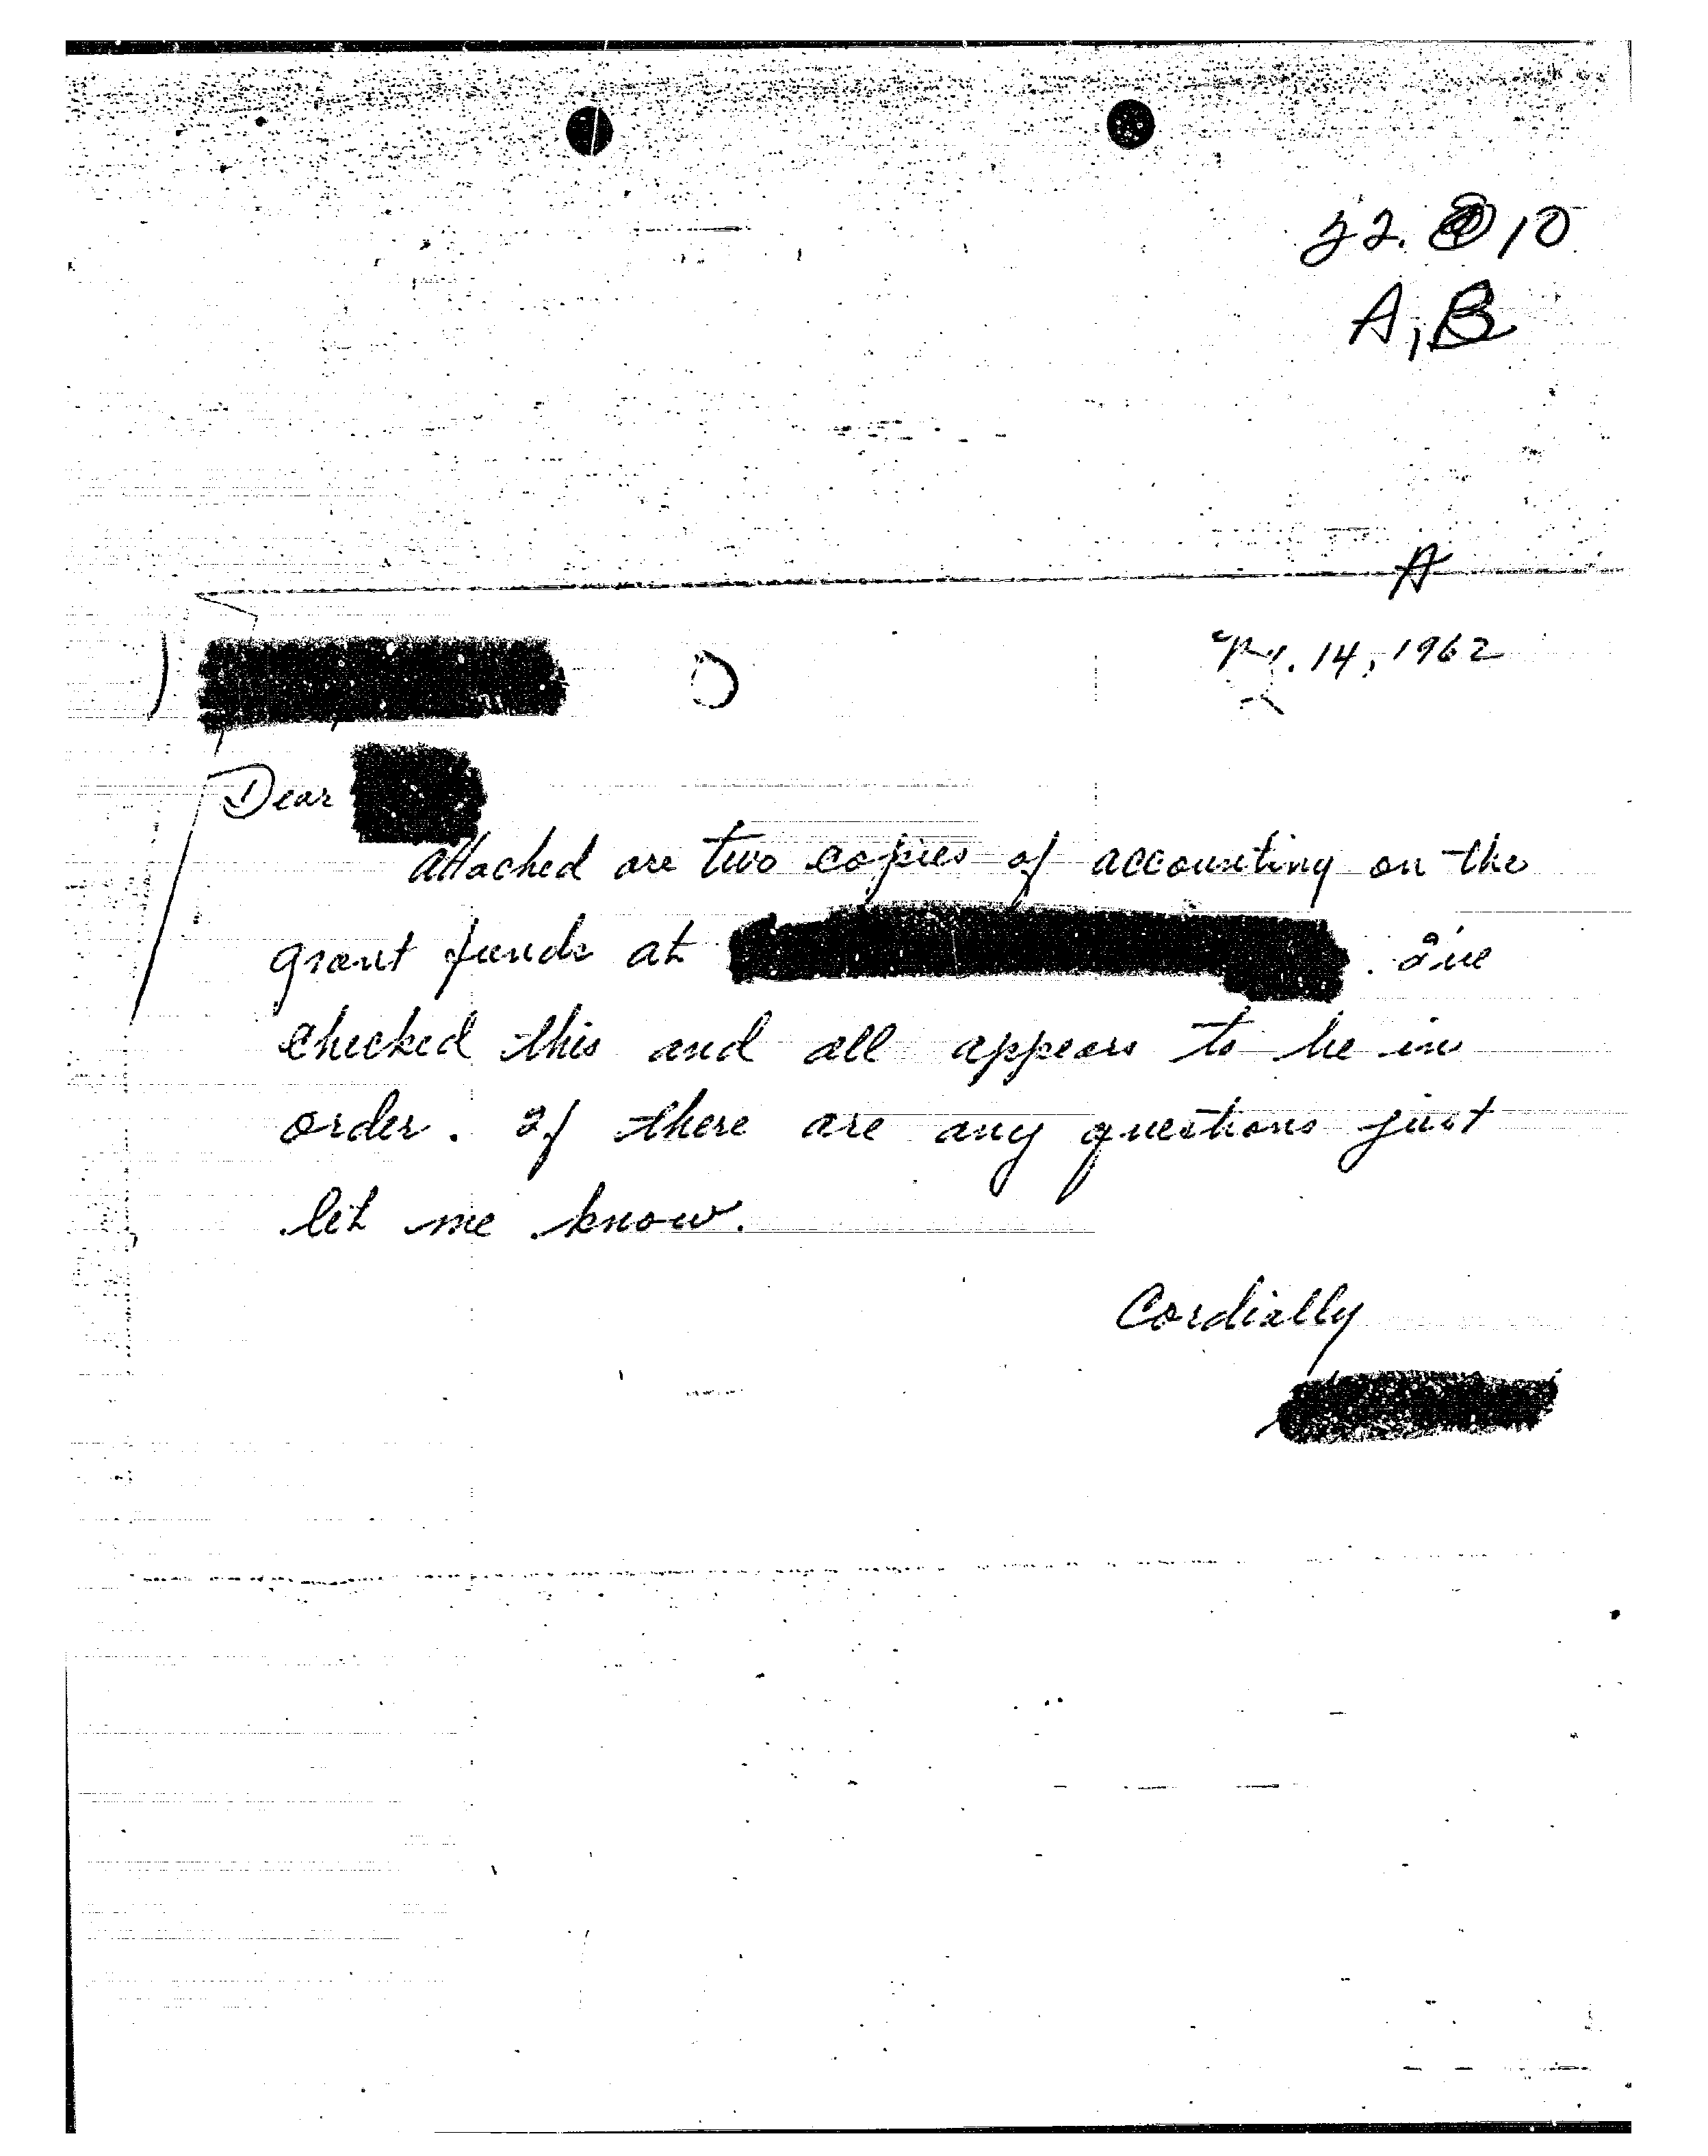 A, B
A
14, 1962
Dear
Attached are two copies of accounting on the
grant funds at . I've
checked this and all appears to be in
order. If there are any questions just
let me know.
Cordially